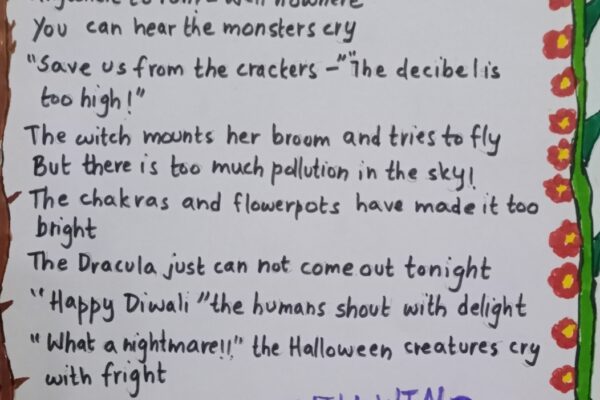 You can hear the monsters cry
"Save us from the crackers -""The decibel is
too high!"
The witch mounts her broom and tries to fly
But there is too much pollution in the sky!
The chakras and flowerpots have made it too
bright
The Dracula just can not come out tonight
"Happy Diwali "the humans shout with delight
"What a nightmare!!" the Halloween creatures cry
with fright